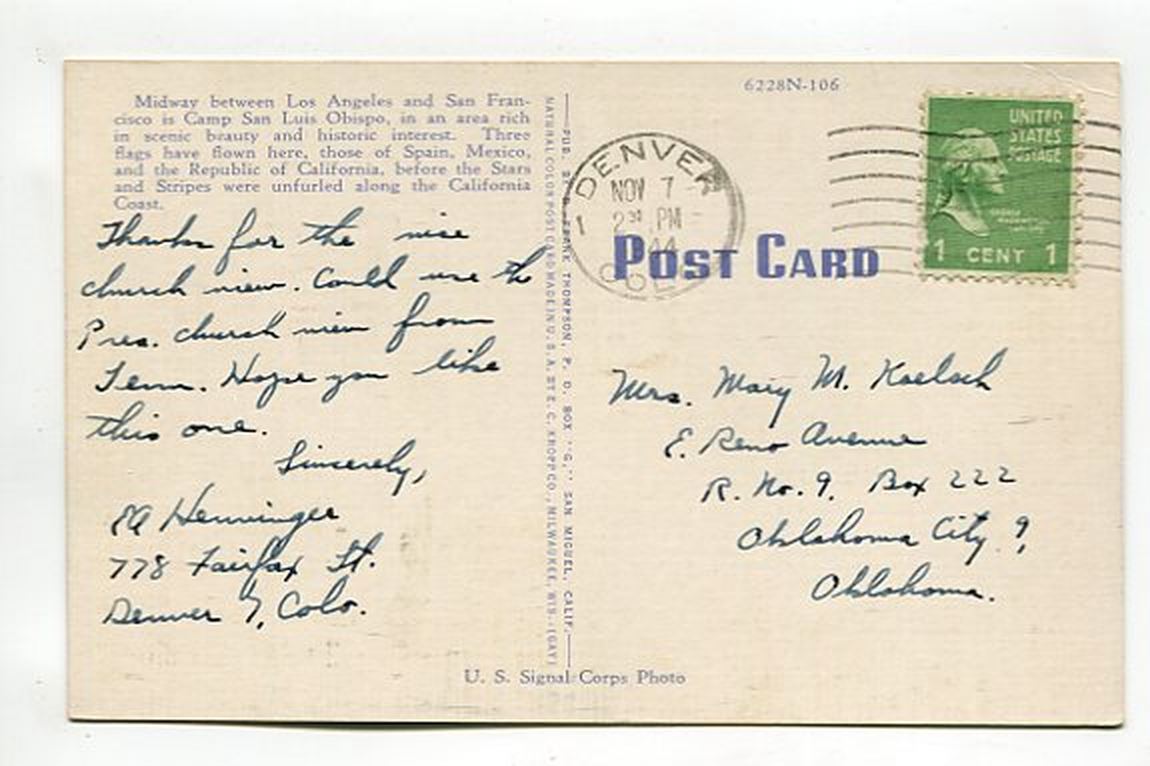 6228N-106
Midway between Los Angeles and San Fran-
cisco is Camp San Luis Obispo, in an area rich
in scenic beauty and historic interest. Three
flags have flown here, those of Spain, Mexico,
and the Republic of California, before the Stars
and Stripes were unfurled along the California
Coast.
Thanks for the nice
church view. Could use the
Pres. church view from
Tenn. Hope you like
this one.
Sincerely,
EA Henninger
778 Fairfax St.
Denver 7, Colo.
NATURAL COLOR POST CARD MADE IN U.S.A. BY E. C. KROPP CO., MILWAUKEE, WIS.
FRANK THOMPSON, P. O. BOX "G," SAN MIGUEL, CALIF.
DENVER
NOV 7
1
PM
44
COLO
POST CARD
UNITED
STATES
POSTAGE
1 CENT 1
Mrs. Mary M. Koelsch
E. Reno Avenue
R. No. 9. Box 222
Oklahoma City 9,
Oklahoma.
U. S. Signal Corps Photo